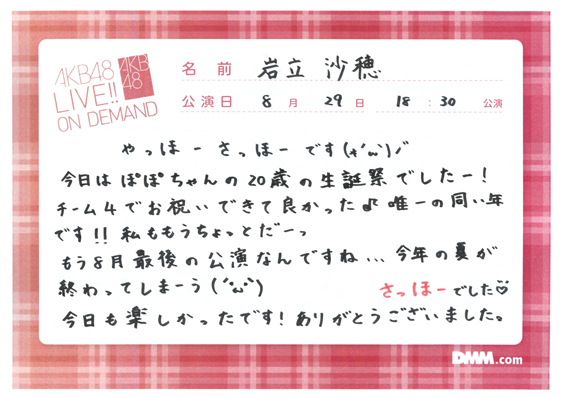 AKB48
LIVE!!
ON DEMAND
AKB
48
名前 岩立 沙穂
公演日 8月 29日 18:30 公演
やっほー さっほー です(*´ω`)ノ゛
今日は ぽぽちゃんの 20歳の 生誕祭でしたー!
チーム4でお祝いできて良かった♪ 唯一の同い年
です!! 私ももうちょっとだーっ
もう8月最後の公演なんですね... 今年の夏が
終わってしまーう(´・ω・`)
さっほーでした♡
今日も楽しかったです! ありがとうございました。
DMM.com